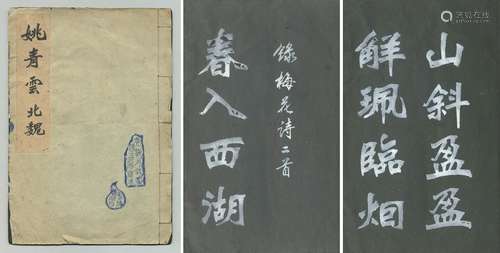 姚青雲北魏
錄梅花诗二首
春入西湖
山斜盈盈
解珮臨